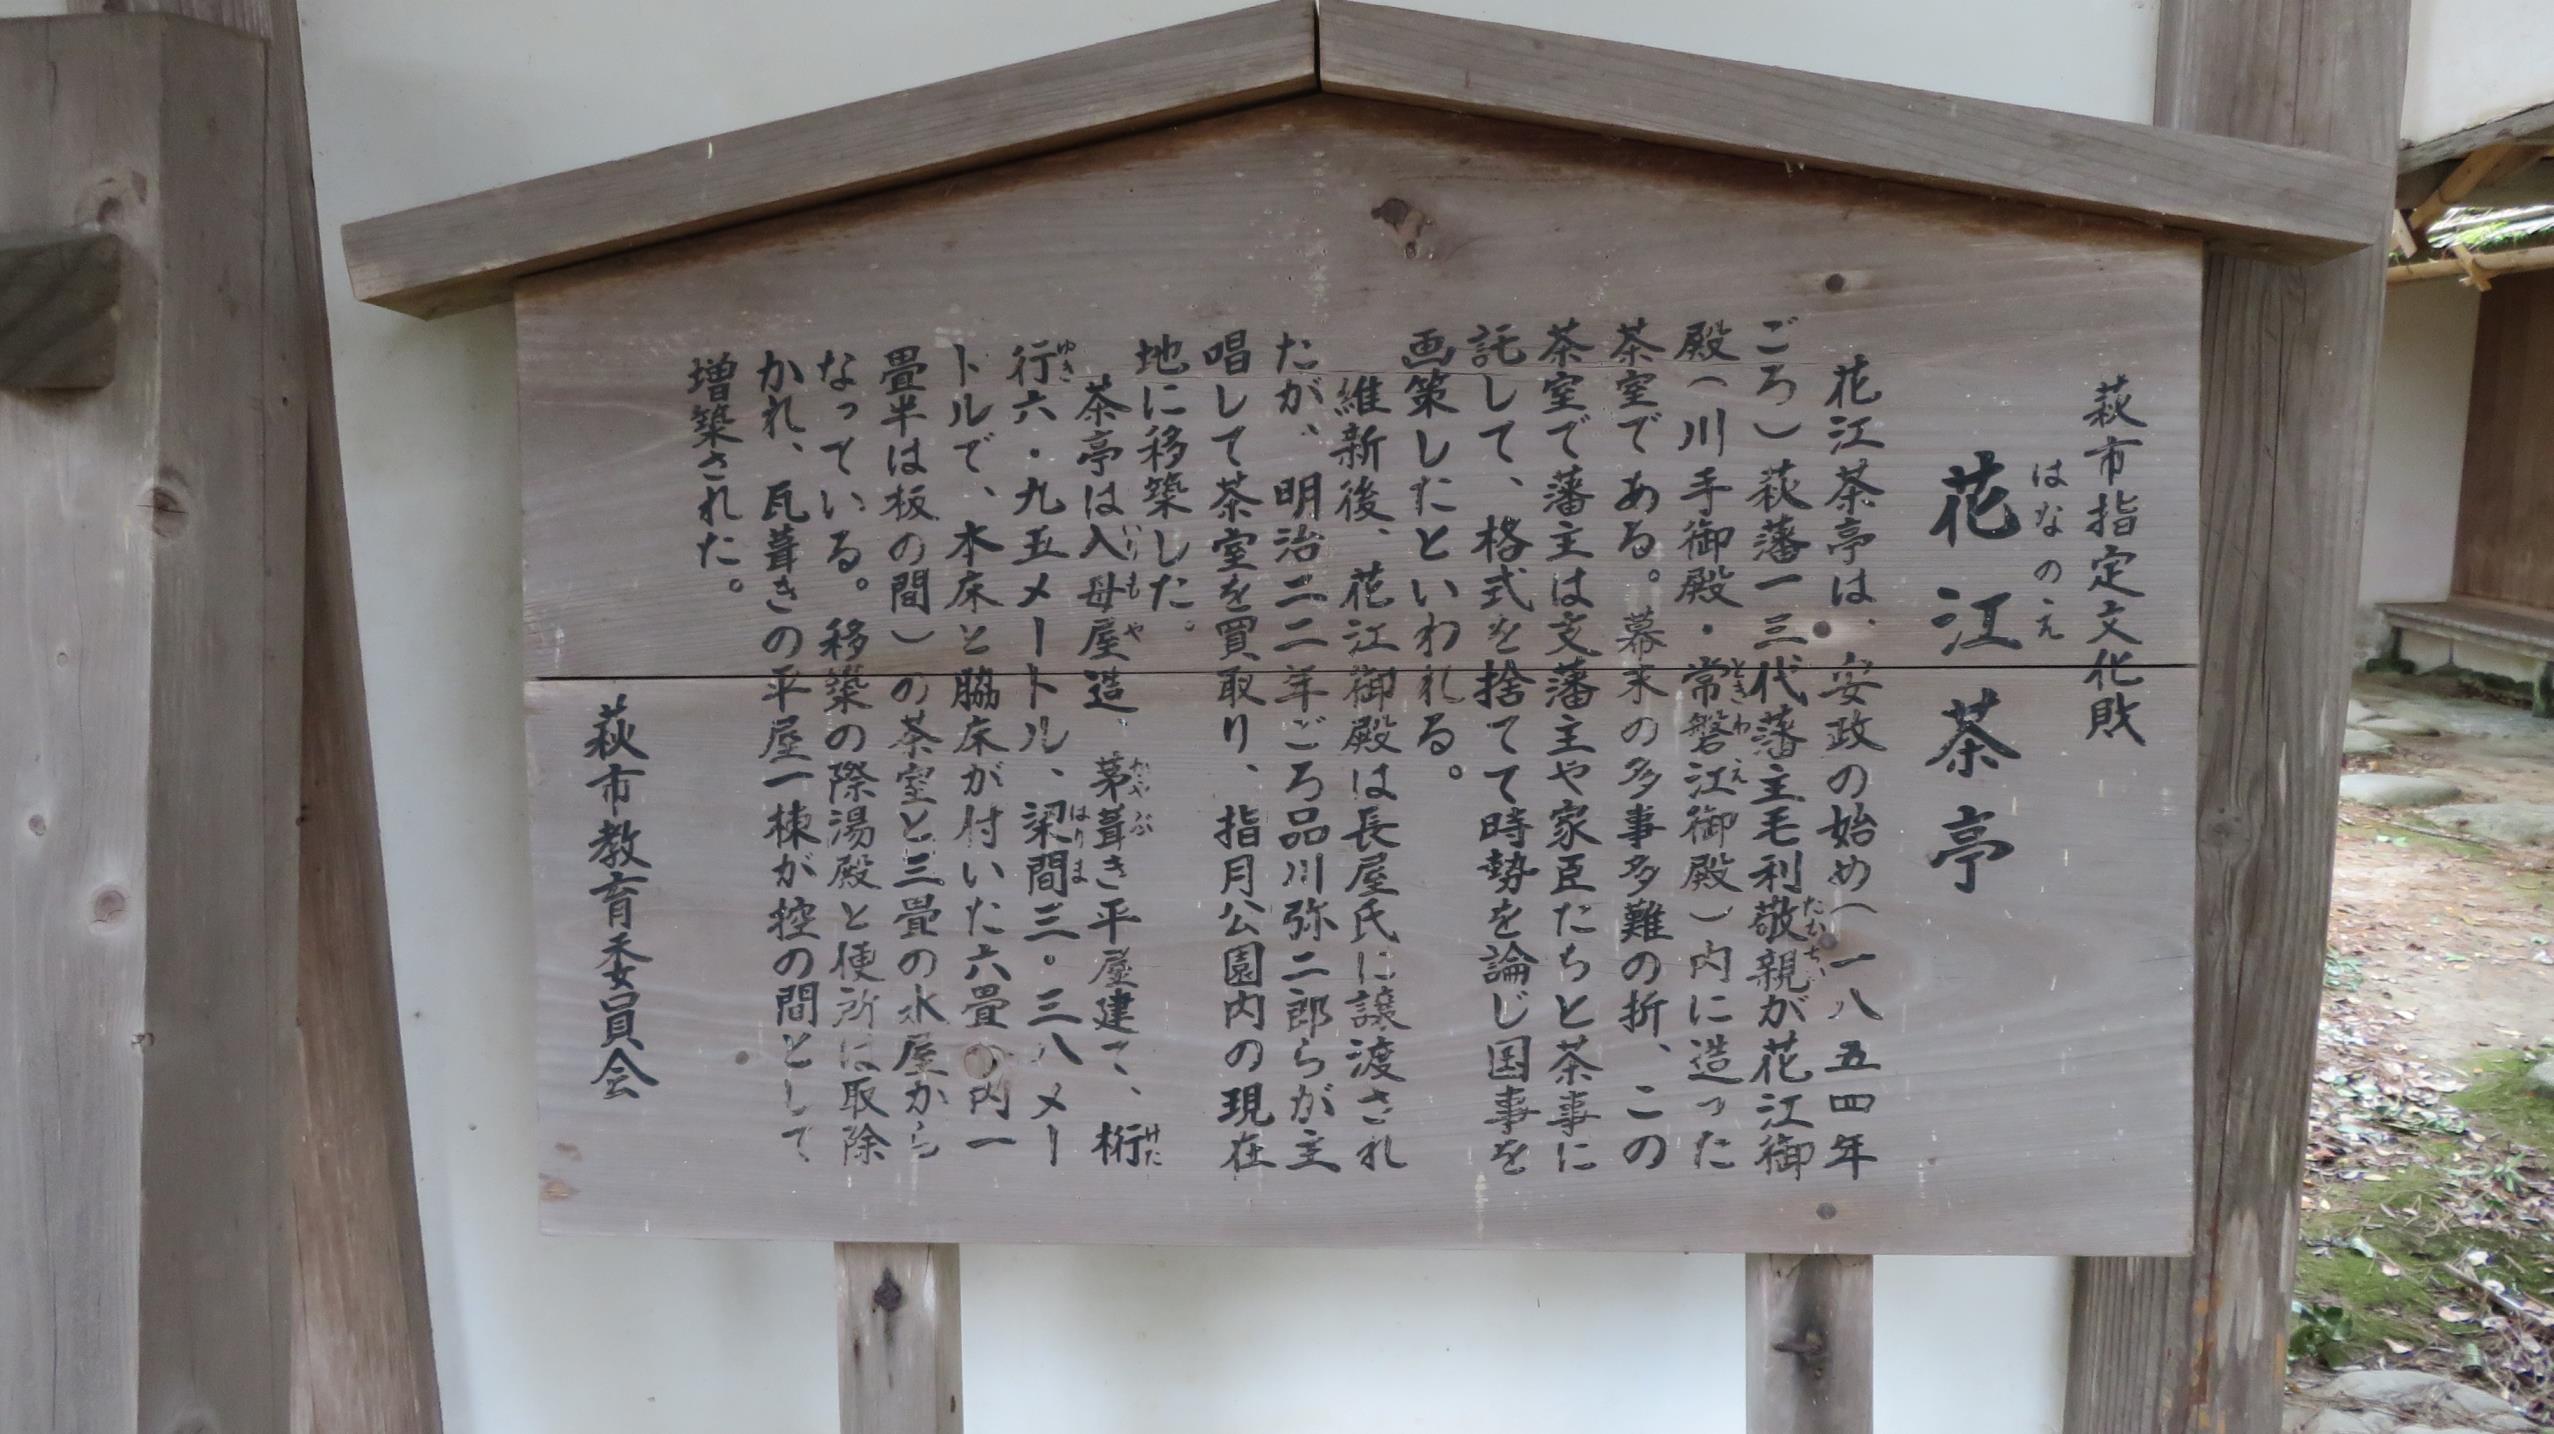 萩市指定文化財
はなのえ
花江茶亭
花江茶亭は、安政の始め（一八五四年
ごろ）萩藩一三代藩主毛利敬親が花江御
たかちか
殿（川手御殿・常磐江御殿）内に造った
ときわえ
茶室である。幕末の多事多難の折、この
茶室で藩主は支藩主や家臣たちと茶事に
託して、格式を捨てて時勢を論じ国事を
画策したといわれる。
維新後、花江御殿は長屋氏に譲渡され
たが、明治二二年ごろ品川弥二郎らが主
唱して茶室を買取り、指月公園内の現在
地に移築した。
茶亭は入母屋造、茅葺き平屋建て、桁
いりもや かやぶ けた
行六・九五メートル、梁間三・三八メー
ゆき はりま
トルで、本床と脇床が付いた六畳の内一
畳半は板の間）の茶室と三畳の水屋から
なっている。移築の際湯殿と便所は取除
かれ、瓦葺きの平屋一棟が控の間として
増築された。
萩市教育委員会